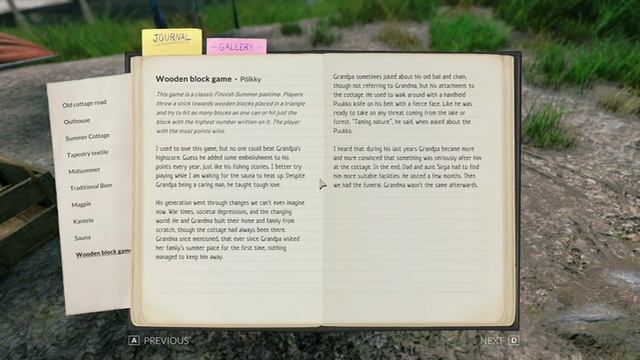 JOURNAL
GALLERY
Old cottage road
Outhouse
Summer Cottage
Tapestry textile
Midsummer
Traditional Beer
Magpie
Kantele
Sauna
Wooden block game
Wooden block game • Pölkky
This game is a classic Finnish Summer pastime. Players
throw a stick towards wooden blocks placed in a triangle
and try to hit as many blocks as one can or hit just the
block with the highest number written on it. The player
with the most points wins.
I used to love this game, but no one could beat Grandpa's
highscore. Guess he added some embelishment to his
points every year, just like his fishing stories. I better try
playing while I am waiting for the sauna to heat up. Despite
Grandpa being a caring man, he taught tough love.
His generation went through changes we can't even imagine
now. War times, societal depressions, and the changing
world. He and Grandma built their home and family from
scratch, though the cottage had always been there.
Grandma once mentioned, that ever since Grandpa visited
her family's summer place for the first time, nothing
managed to keep him away.
Grandpa sometimes joked about his old ball and chain,
though not referring to Grandma, but his attachment to
the cottage. He used to walk around with a handheld
Puukko knife on his belt with a fierce face. Like he was
ready to take on any threat coming from the lake or
forest. "Taming nature", he said, when asked about the
Puukko.
I heard that during his last years Grandpa became more
and more convinced that something was seriously after him
at the cottage. In the end, Dad and aunt Sirpa had to find
him more suitable facilities. He lasted a few months. Then
we had the funeral. Grandma wasn't the same afterwards.
A PREVIOUS
NEXT D